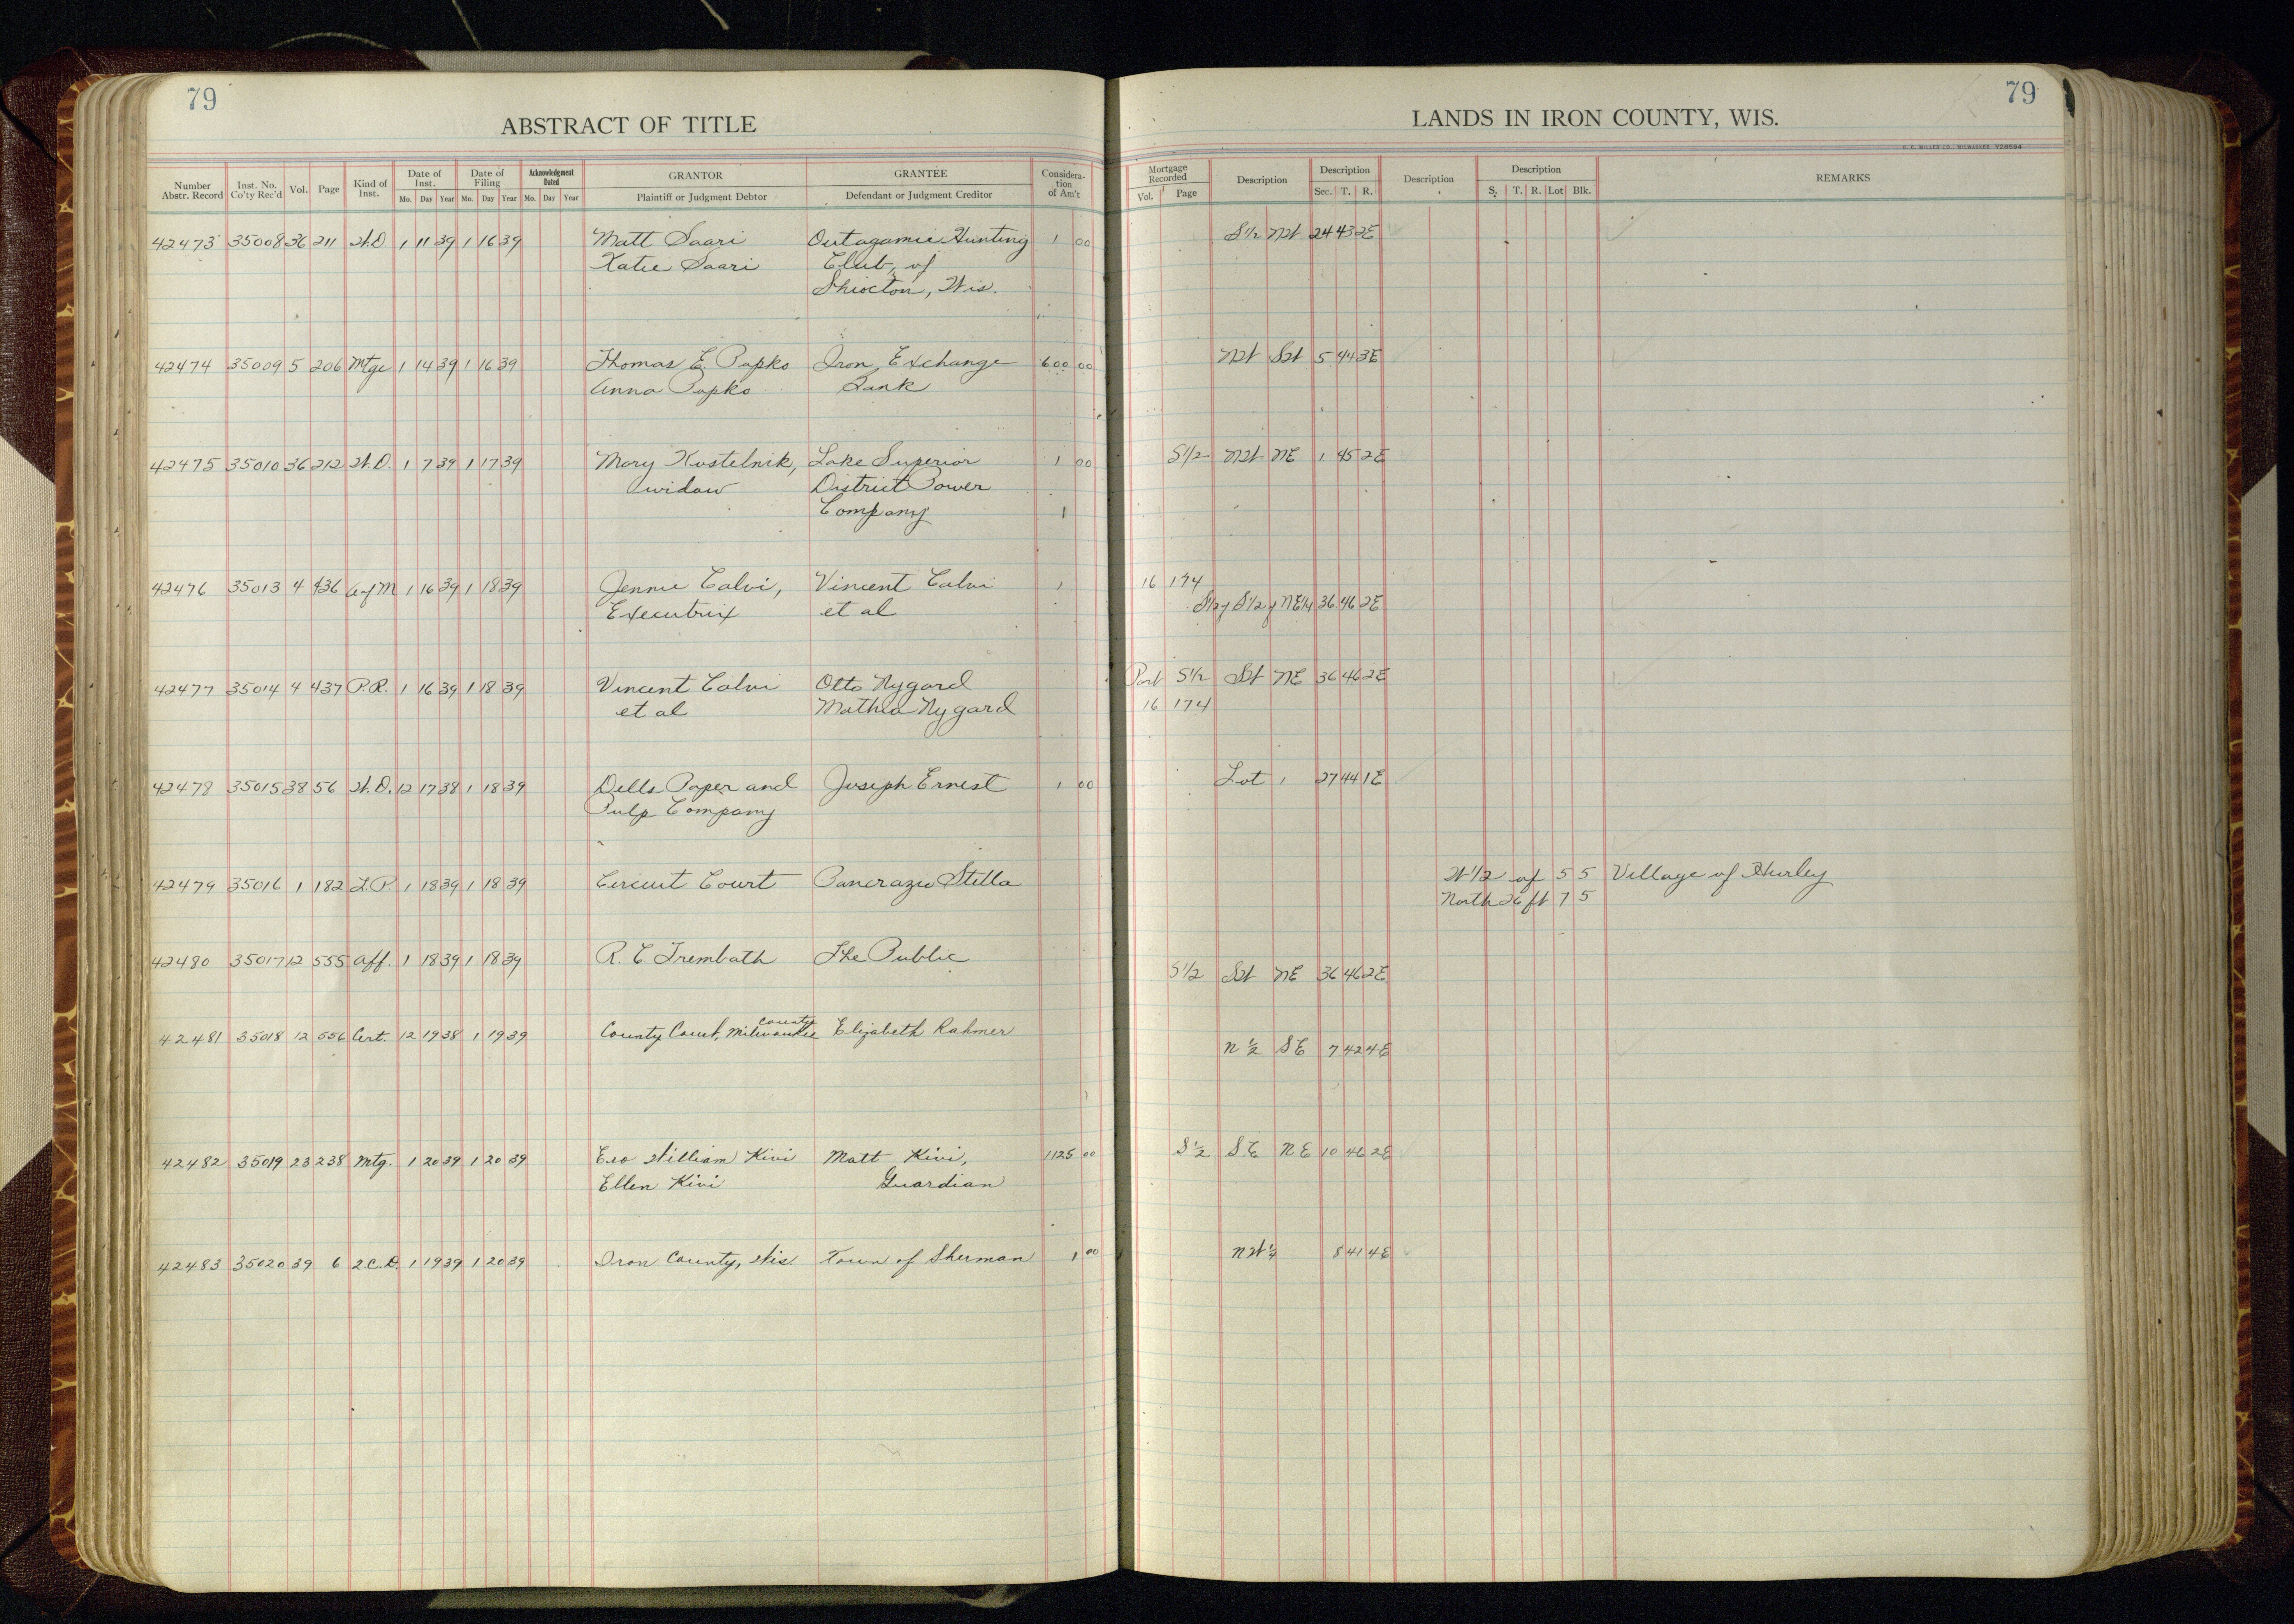 79
ABSTRACT OF TITLE
Number Abstr. Record Inst. No. Co'ty Rec'd Vol. Page Kind of Inst. Date of Inst. Mo. Day Year Date of Filing Mo. Day Year Acknowledgment Dated Mo. Day Year GRANTOR Plaintiff or Judgment Debtor GRANTEE Defendant or Judgment Creditor Considera-tion of Am't
42473 35008 36 211 W.D 1 11 39 1 16 39 Matt Saari Outagamie Hunting 1 00
Katie Saari Club, of
Shiocton, Wis.
42474 35009 5 206 Mtge 1 14 39 1 16 39 Thomas E. Popko Iron Exchange 600 00
Anna Popko Bank
42475 35010 36 212 W.D. 1 7 39 1 17 39 Mary Kostelnik, Lake Superior 1 00
widow District Power
Company 1
42476 35013 4 436 A of M 1 16 39 1 18 39 Jennie Calvi, Vincent Calvi 1
Executrix et al
42477 35014 4 437 P.R. 1 16 39 1 18 39 Vincent Calvi Otto Nygard
et al Mathla Nygard
42478 35015 38 56 W.D. 12 17 38 1 18 39 Dells Paper and Joseph Ernest 1 00
Pulp Company
42479 35016 1 182 L.P. 1 18 39 1 18 39 Circuit Court Pancrazio Stella
42480 35017 12 555 Aff. 1 18 39 1 18 39 R. E Trembath The Public
county
42481 35018 12 556 Cert. 12 19 38 1 19 39 County Court, Milwaukee Elizabeth Rahmer
42482 35019 23 238 Mtg. 1 20 39 1 20 39 Eso William Kivi Matt Kivi, 1125 00
Ellen Kivi Guardian
42483 35020 39 6 Q.C.D. 1 19 39 1 20 39 Iron County, Wis Town of Sherman 1 00
79
LANDS IN IRON COUNTY, WIS.
H. C. MILLER CO., MILWAUKEE Y28594
Mortgage Recorded Vol. Page Description Description Sec. T. R. Description Description S. T. R. Lot Blk. REMARKS
S1/2 NW 24 43 2E
NW SW 5 44 3E
S1/2 NW NE 1 45 2E
16 174
S1/2 of S1/2 of NE1/4 36 46 2E
Part S1/2 SW NE 36 46 2E
16 174
Lot 1 27 44 1E
W1/2 of 5 5 Village of Hurley
North 26 ft 7 5
S1/2 SW NE 36 46 2E
N 1/2 SE 7 42 4E
S 1/2 SE NE 10 46 2E
NW 1/4 8 41 4E